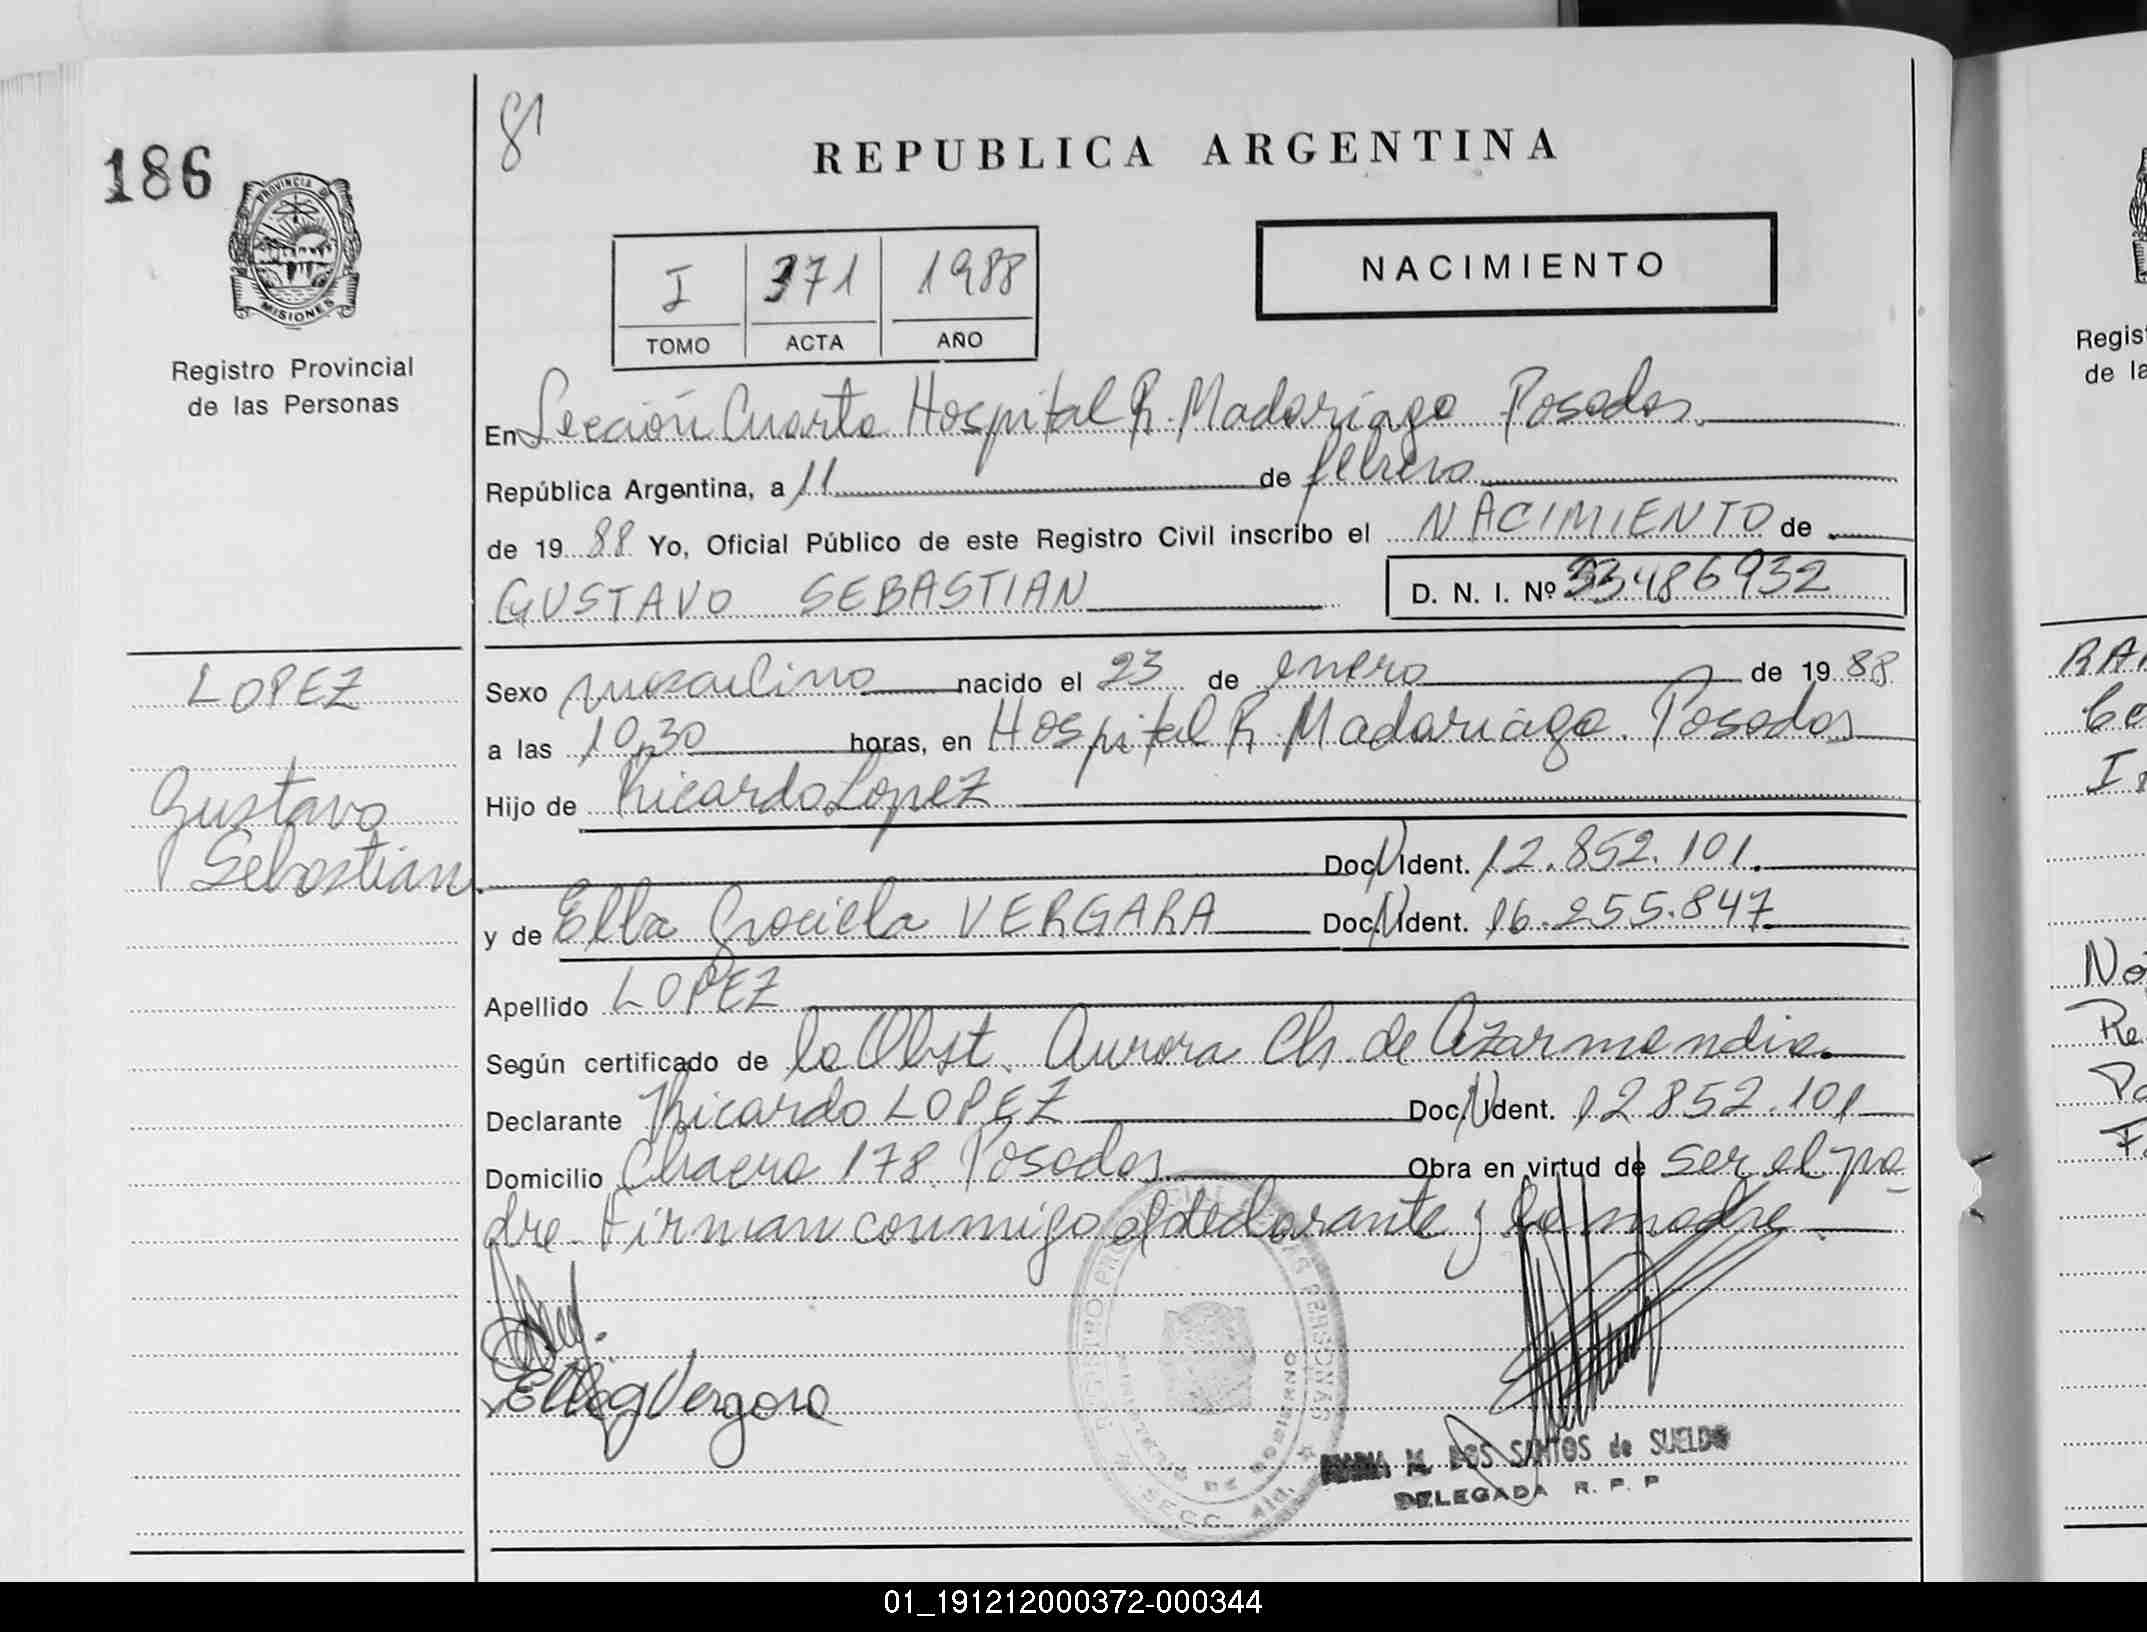 186
81
REPUBLICA ARGENTINA
PROVINCIA DE
MISIONES
I 371 1988
TOMO ACTA AÑO
NACIMIENTO
Registro Provincial
de las Personas
En Sección Cuarta Hospital R. Madariaga Posadas
República Argentina, a 11 de febrero
de 1988 Yo, Oficial Público de este Registro Civil inscribo el NACIMIENTO de
GUSTAVO SEBASTIAN D. N. I. Nº 33486932
LOPEZ
Gustavo
Sebastian.
Sexo masculino nacido el 23 de enero de 1988
a las 10,30 horas, en Hospital R. Madariaga. Posadas
Hijo de Ricardo Lopez
Doc. Ident. 12.852.101.
y de Ella Graciela VERGARA Doc. Ident. 16.255.847
Apellido LOPEZ
Según certificado de la Obst. Aurora Ch. de Azarmendia.
Declarante Ricardo LOPEZ Doc. Ident. 12852.101
Domicilio 178 Posadas Obra en virtud de ser el pa-
dre. Firman conmigo el declarante y la madre
Ella g Vergara
REGISTRO PROVINCIAL DE LAS PERSONAS
MINISTERIO DE GOBIERNO
SECC. 4ta.
MARIA M. DOS SANTOS de SUELDO
DELEGADA R. P. P
Regis
de la
RA
Ce
I
No
Re
Pa
F
01_191212000372-000344